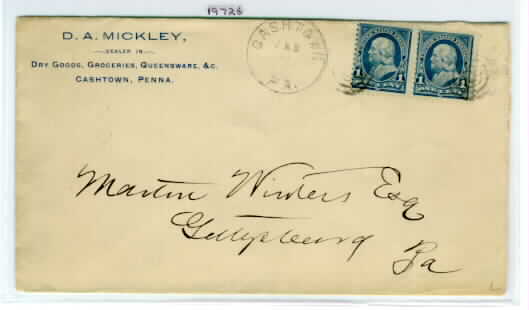 19726
D. A. MICKLEY,
DEALER IN
DRY GOODS, GROCERIES, QUEENSWARE, &C.
CASHTOWN, PENNA.
CASHTOWN
PA.
1 1
ONE CENT ONE CENT
Martin Winters Esq
Gettysburg
Pa